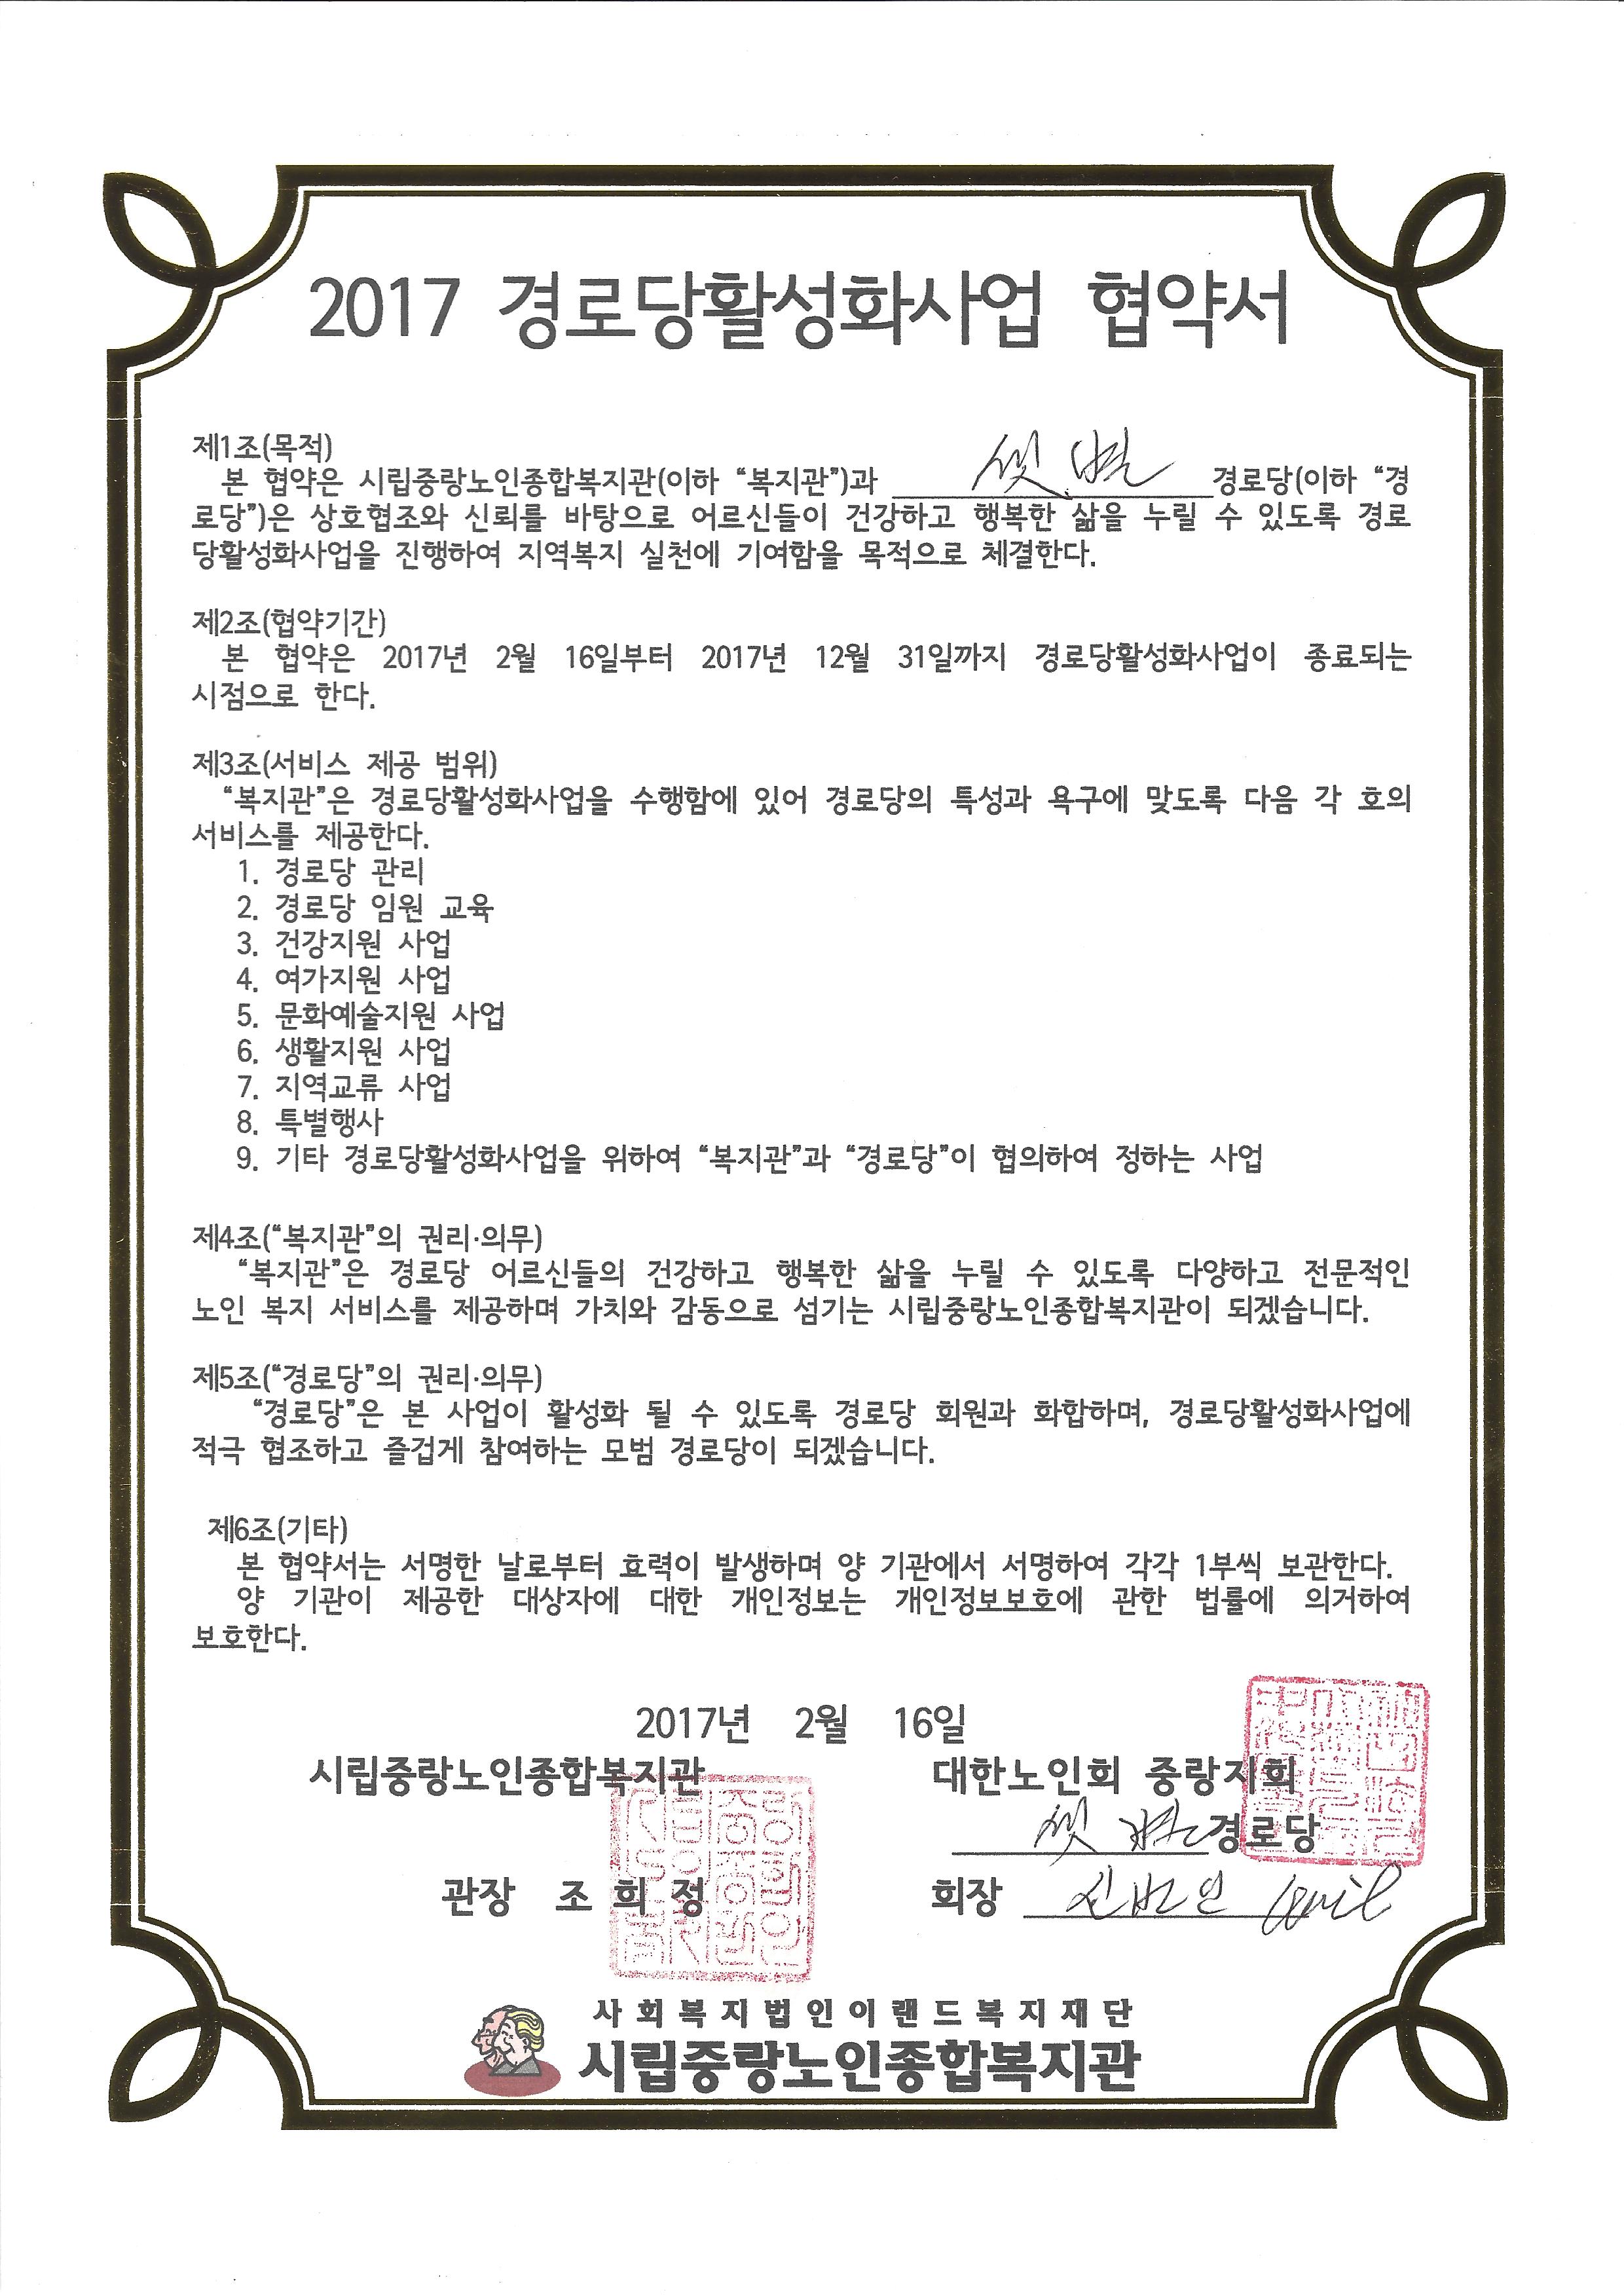 2017 경로당활성화사업 협약서
제1조(목적)
본 협약은 시립중랑노인종합복지관(이하 “복지관”)과 샛별 경로당(이하 “경
로당”)은 상호협조와 신뢰를 바탕으로 어르신들이 건강하고 행복한 삶을 누릴 수 있도록 경로
당활성화사업을 진행하여 지역복지 실천에 기여함을 목적으로 체결한다.
제2조(협약기간)
본 협약은 2017년 2월 16일부터 2017년 12월 31일까지 경로당활성화사업이 종료되는
시점으로 한다.
제3조(서비스 제공 범위)
“복지관”은 경로당활성화사업을 수행함에 있어 경로당의 특성과 욕구에 맞도록 다음 각 호의
서비스를 제공한다.
1. 경로당 관리
2. 경로당 임원 교육
3. 건강지원 사업
4. 여가지원 사업
5. 문화예술지원 사업
6. 생활지원 사업
7. 지역교류 사업
8. 특별행사
9. 기타 경로당활성화사업을 위하여 “복지관”과 “경로당”이 협의하여 정하는 사업
제4조(“복지관”의 권리·의무)
“복지관”은 경로당 어르신들의 건강하고 행복한 삶을 누릴 수 있도록 다양하고 전문적인
노인 복지 서비스를 제공하며 가치와 감동으로 섬기는 시립중랑노인종합복지관이 되겠습니다.
제5조(“경로당”의 권리·의무)
“경로당”은 본 사업이 활성화 될 수 있도록 경로당 회원과 화합하며, 경로당활성화사업에
적극 협조하고 즐겁게 참여하는 모범 경로당이 되겠습니다.
제6조(기타)
본 협약서는 서명한 날로부터 효력이 발생하며 양 기관에서 서명하여 각각 1부씩 보관한다.
양 기관이 제공한 대상자에 대한 개인정보는 개인정보보호에 관한 법률에 의거하여
보호한다.
2017년 2월 16일
시립중랑노인종합복지관 대한노인회 중랑지회
샛별 경로당
관장 조희정 회장
사회복지법인이랜드복지재단
시립중랑노인종합복지관